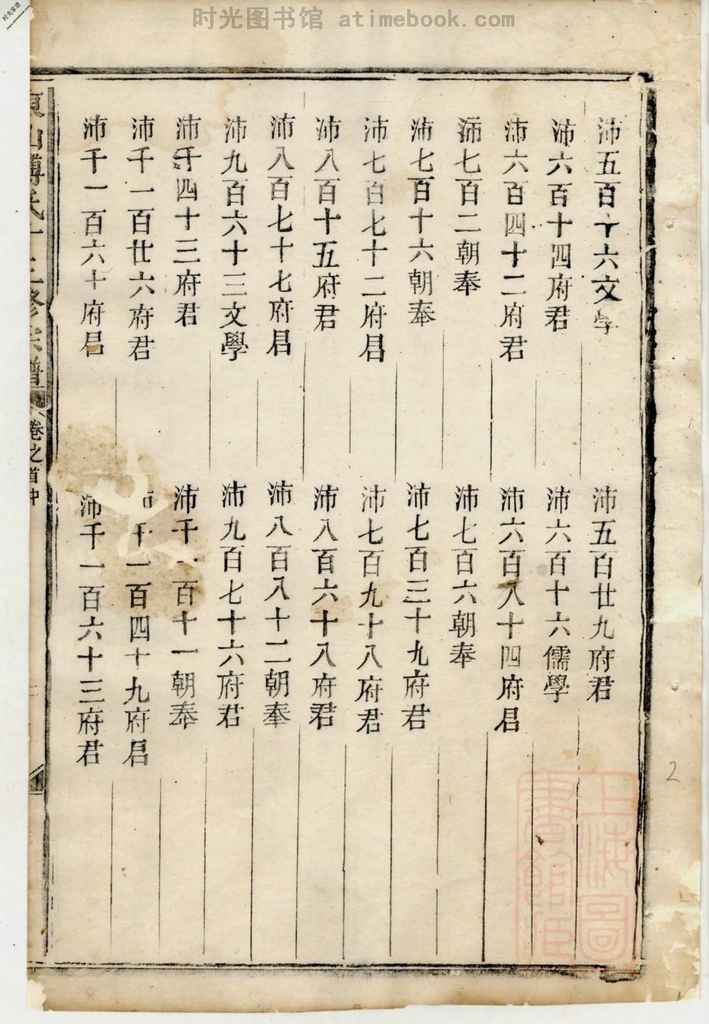 时光图书馆 atimebook.com
沛五百十六文學
沛五百廿九府君
沛六百十四府君
沛六百十六儒學
沛六百四十二府君
沛六百八十四府君
沛七百二朝奉
沛七百六朝奉
沛七百十六朝奉
沛七百三十九府君
沛七百七十二府君
沛七百九十八府君
沛八百十五府君
沛八百六十八府君
沛八百七十七府君
沛八百八十二朝奉
沛九百六十三文學
沛九百七十六府君
沛千四十三府君
沛千一百十一朝奉
沛千一百廿六府君
沛千一百四十九府君
沛千一百六十府君
沛千一百六十三府君
宗譜
卷之首中
上海圖書館藏
2